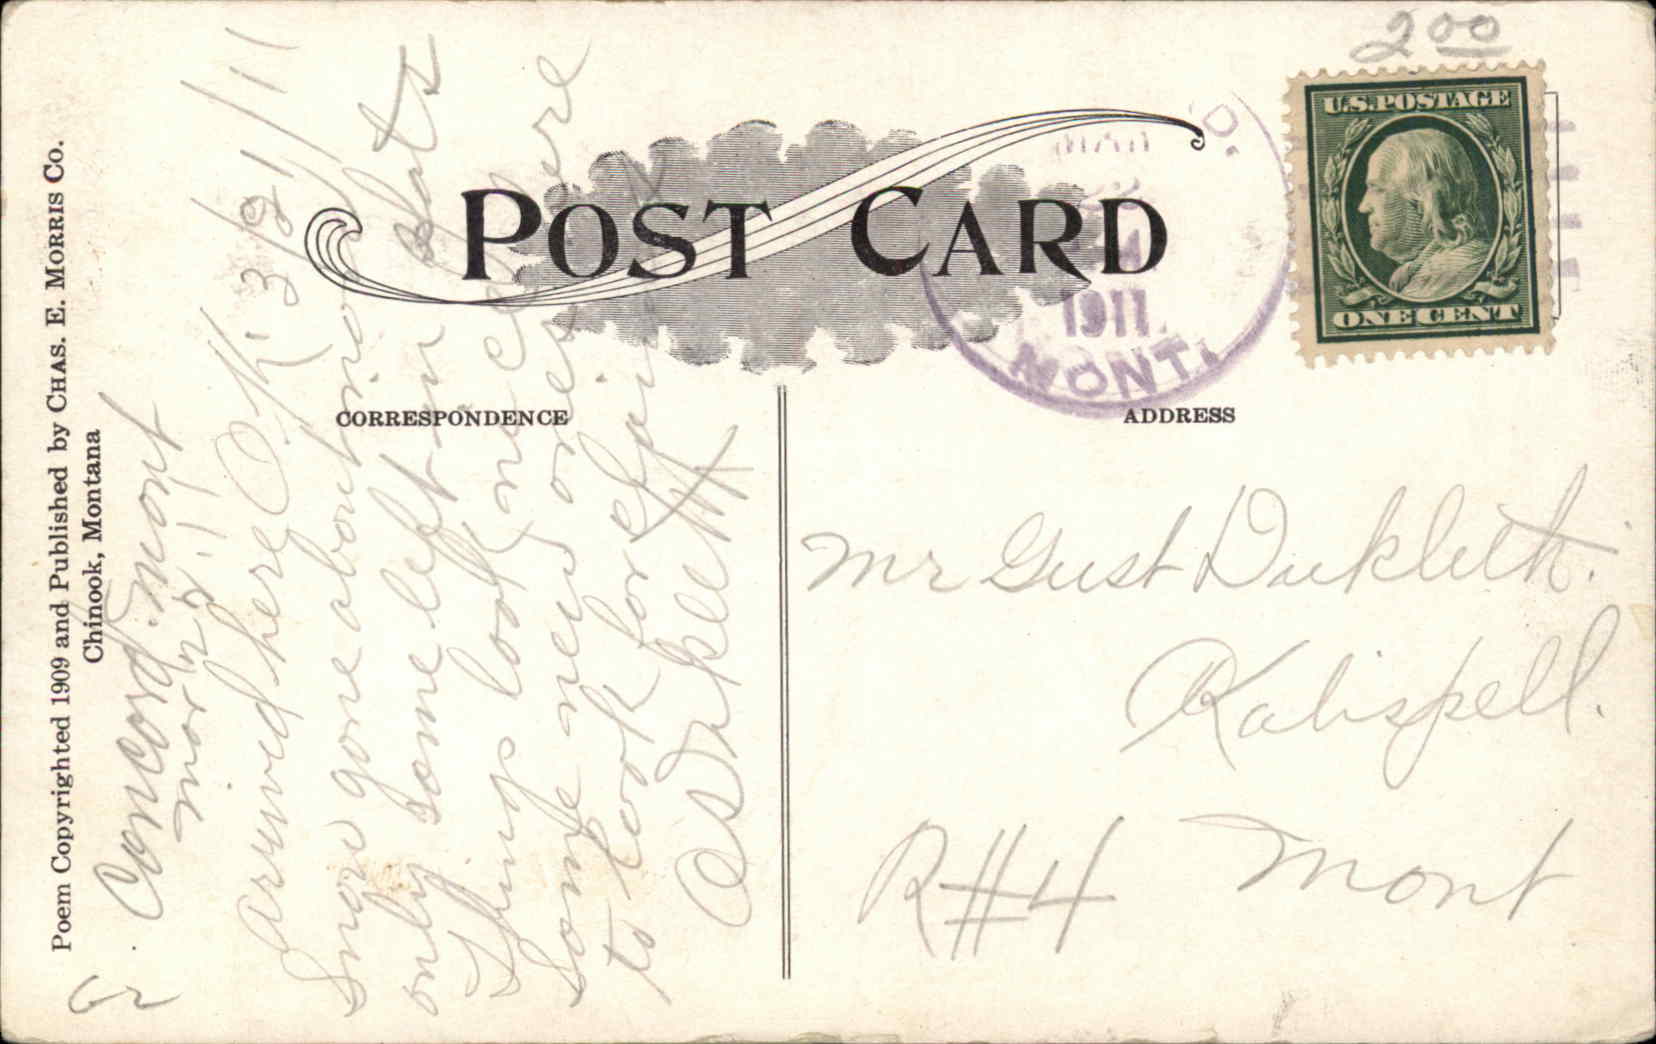 Poem Copyrighted 1909 and Published by CHAS. E. MORRIS Co.
Chinook, Montana
POST CARD
CORRESPONDENCE
ADDRESS
200
U.S. POSTAGE
ONE CENT
MAR
1911
MONT.
Concord, Mont
Mar 21 11
Arrived here O.K. 3/21/11
Snow gone about no
only some left in
Things look
some
to look for
Mr Gust
Kalispell.
R#4 Mont